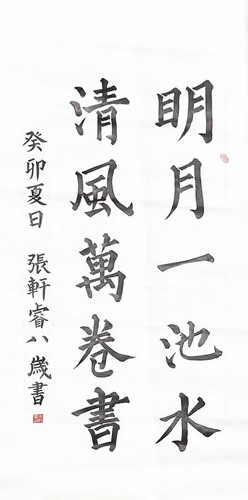 明月一池水
清風萬卷書
癸卯夏日 張軒睿八歲書